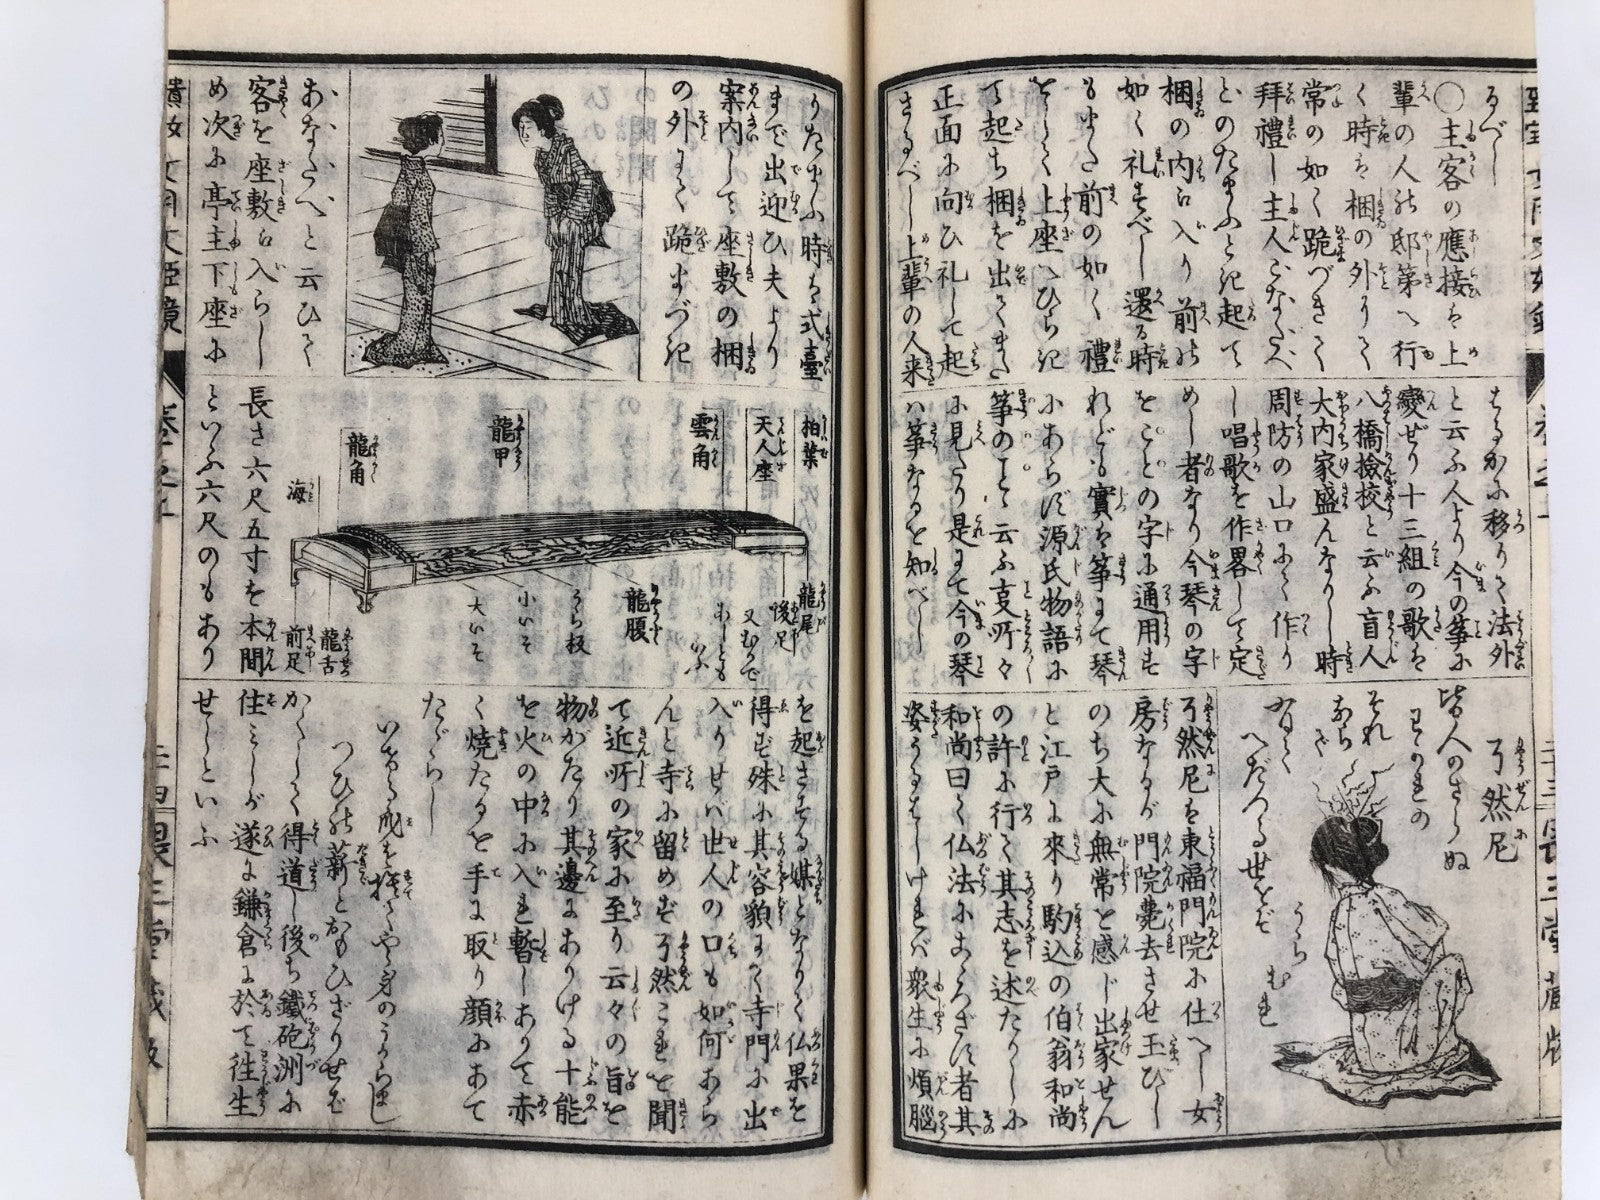 るべし
○主客の應接は上
輩の人の邸第へ行
く時は梱の外りて
常の如く跪づきて
拜禮し主人こなたへ
とのたまふとき起て
梱の内に入り前の
如く礼すべし還る時
もまた前の如く禮
をして上座へひらき
て起ち梱を出てまた
正面に向ひ礼して起
さるべし上輩の人来
はるかに移りて法外
と云ふ人より今の箏に
變ぜり十三組の歌は
八橋撿挍と云ふ盲人
大内家盛んなりし時
周防の山口にて作り
し唱歌を作畧して定
めし者なり今琴の字
をことの字に通用す
れども實は箏にて琴
にあらず源氏物語に
箏のこと云ふ支所々
に見たり是にて今の琴
ハ箏なるを知べし
了然尼
皆人のさらぬ
それ
みねて
へだつる世をぞ
うら
むれ
了然尼は東福門院に仕へし女
房なるが門院薨去させ玉ひし
のち大に無常を感じ出家せん
と江戸に來り駒込の伯翁和尚
の許に行て其志を述たりしに
和尚曰く仏法にこころざす者其
姿うるはしければ衆生に煩腦
りたまふ時は式臺
まで出迎ひ夫より
案内して座敷の梱
の外にて跪まづき
あなたへと云ひて
客を座敷に入らし
め次に亭主下座に
柏葉
天人座
雲角
龍甲
龍角
海
龍尾
後足
又むので
あしとも
いふ
龍腹
うら板
小いそ
大いそ
龍舌
前足
長さ六尺五寸を本間
といふ六尺のもあり
を起さする媒となりて仏果を
得ず殊に其容貌にて寺門に出
入りせば世人の口も如何あら
んと寺に留めず了然これを聞
て近所の家に至り云々の旨を
物がたり其邊にありける十能
を火の中に入れ暫しありて赤
く焼たるを手に取り顔にあて
たゞらし
いける世を捨てやく身のうからまし
つひの薪とおもひざりせば
かくして得道し後ち鐵砲洲に
住みしが遂に鎌倉に於て往生
せしといふ